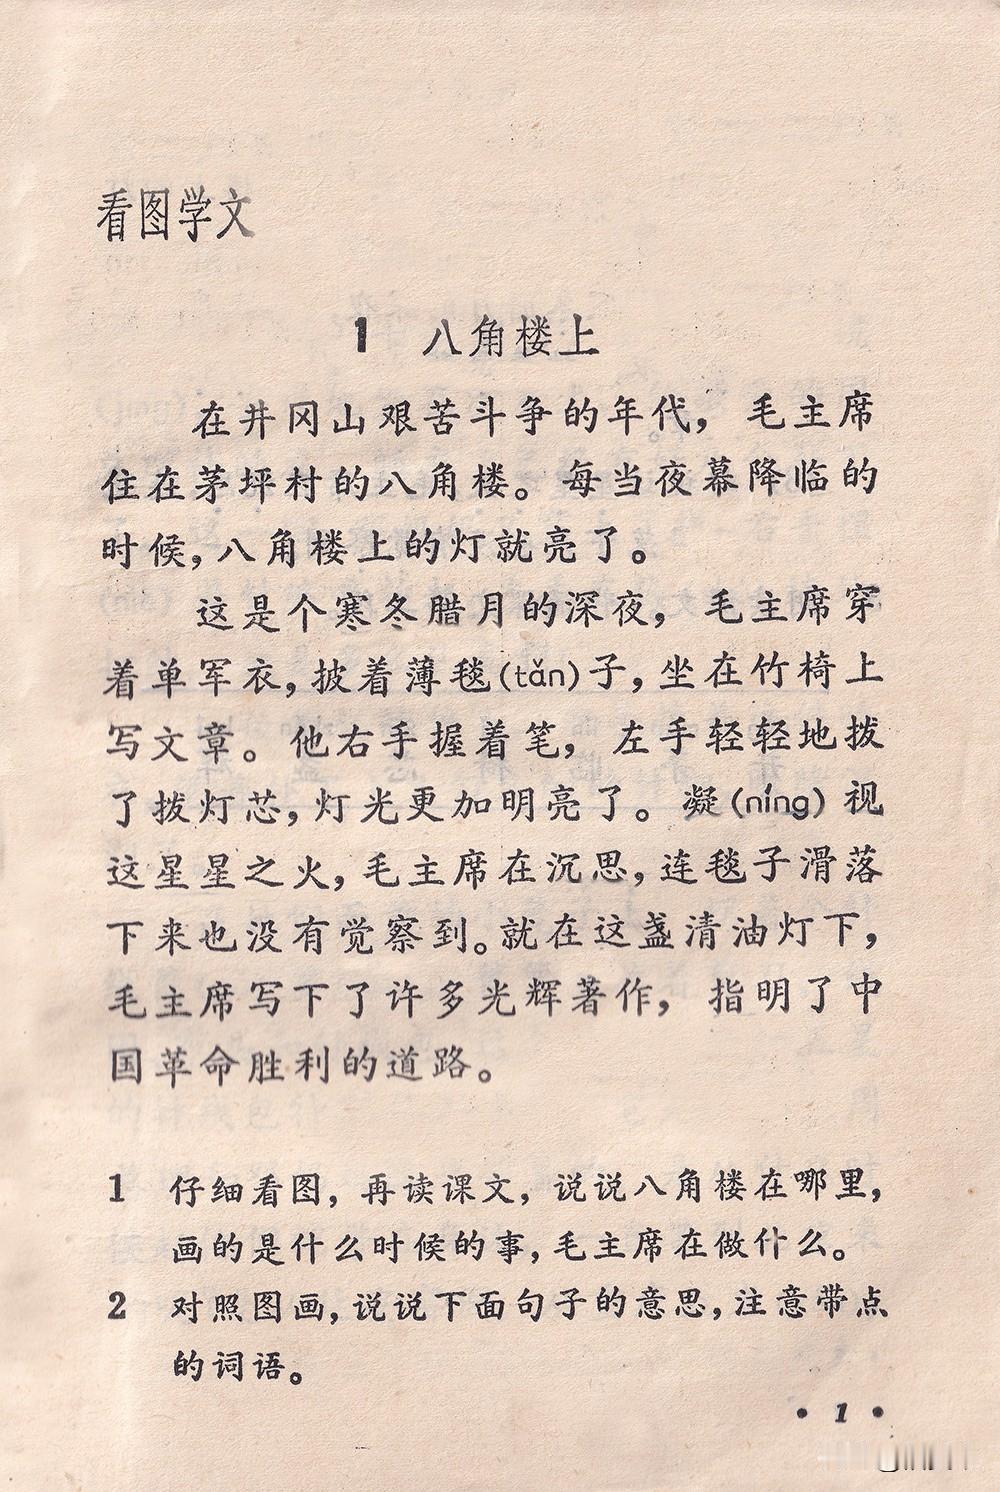 看图学文
1 八角楼上
在井冈山艰苦斗争的年代，毛主席
住在茅坪村的八角楼。每当夜幕降临的
时候，八角楼上的灯就亮了。
这是个寒冬腊月的深夜，毛主席穿
着单军衣，披着薄毯(tǎn)子，坐在竹椅上
写文章。他右手握着笔，左手轻轻地拨
了拨灯芯，灯光更加明亮了。凝(níng)视
这星星之火，毛主席在沉思，连毯子滑落
下来也没有觉察到。就在这盏清油灯下，
毛主席写下了许多光辉著作，指明了中
国革命胜利的道路。
1 仔细看图，再读课文，说说八角楼在哪里，
画的是什么时候的事，毛主席在做什么。
2 对照图画，说说下面句子的意思，注意带点
的词语。
• 1 •